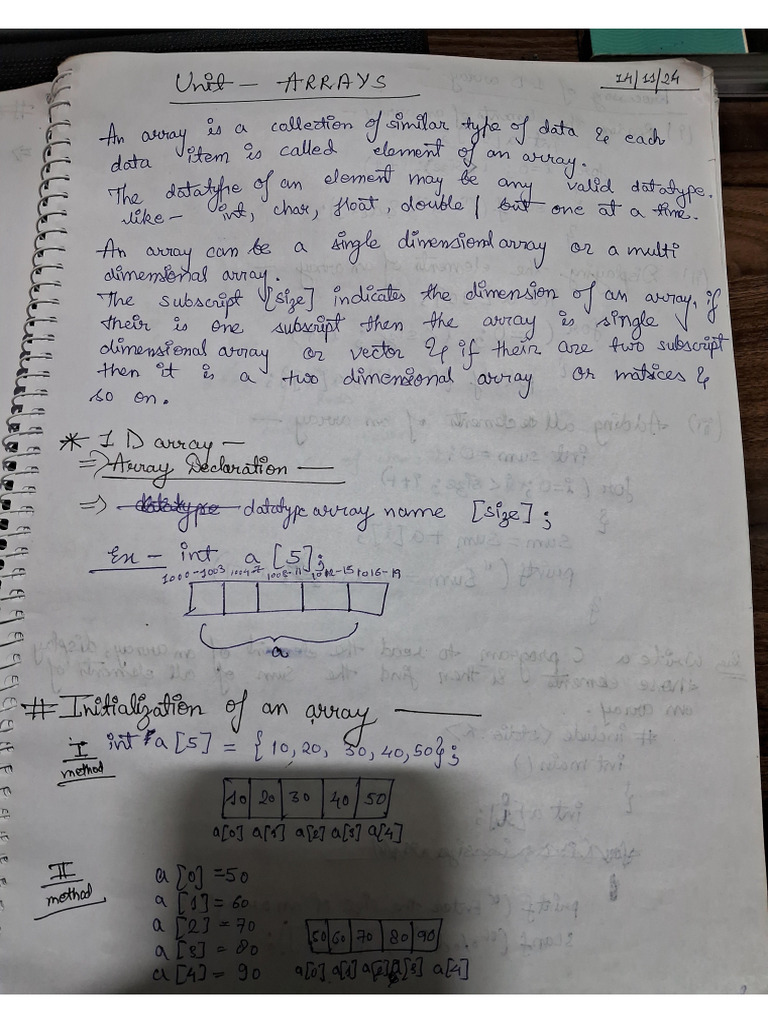 Unit - ARRAYS
14/11/24
An array is a collection of similar type of data & each
data item is called element of an array.
The datatype of an element may be any valid datatype.
like - int, char, float, double / but one at a time.
An array can be a single dimensional array or a multi
dimensional array.
The subscript [size] indicates the dimension of an array, if
their is one subscript then the array is single
dimensional array or vector & if their are two subscript
then it is a two dimensional array or matices &
so on.
* 1 D array -
=> Array Declaration -
=> datatype datatype array name [size];
Ex - int a [5];
1000-1003 1004-7 1008-11 1012-15 1016-19
a
# Initialization of an array -
I method
int a [5] = {10, 20, 30, 40, 50};
10 20 30 40 50
a[0] a[1] a[2] a[3] a[4]
II method
a [0] = 50
a [1] = 60
a [2] = 70
a [3] = 80
a [4] = 90
50 60 70 80 90
a[0] a[1] a[2] a[3] a[4]